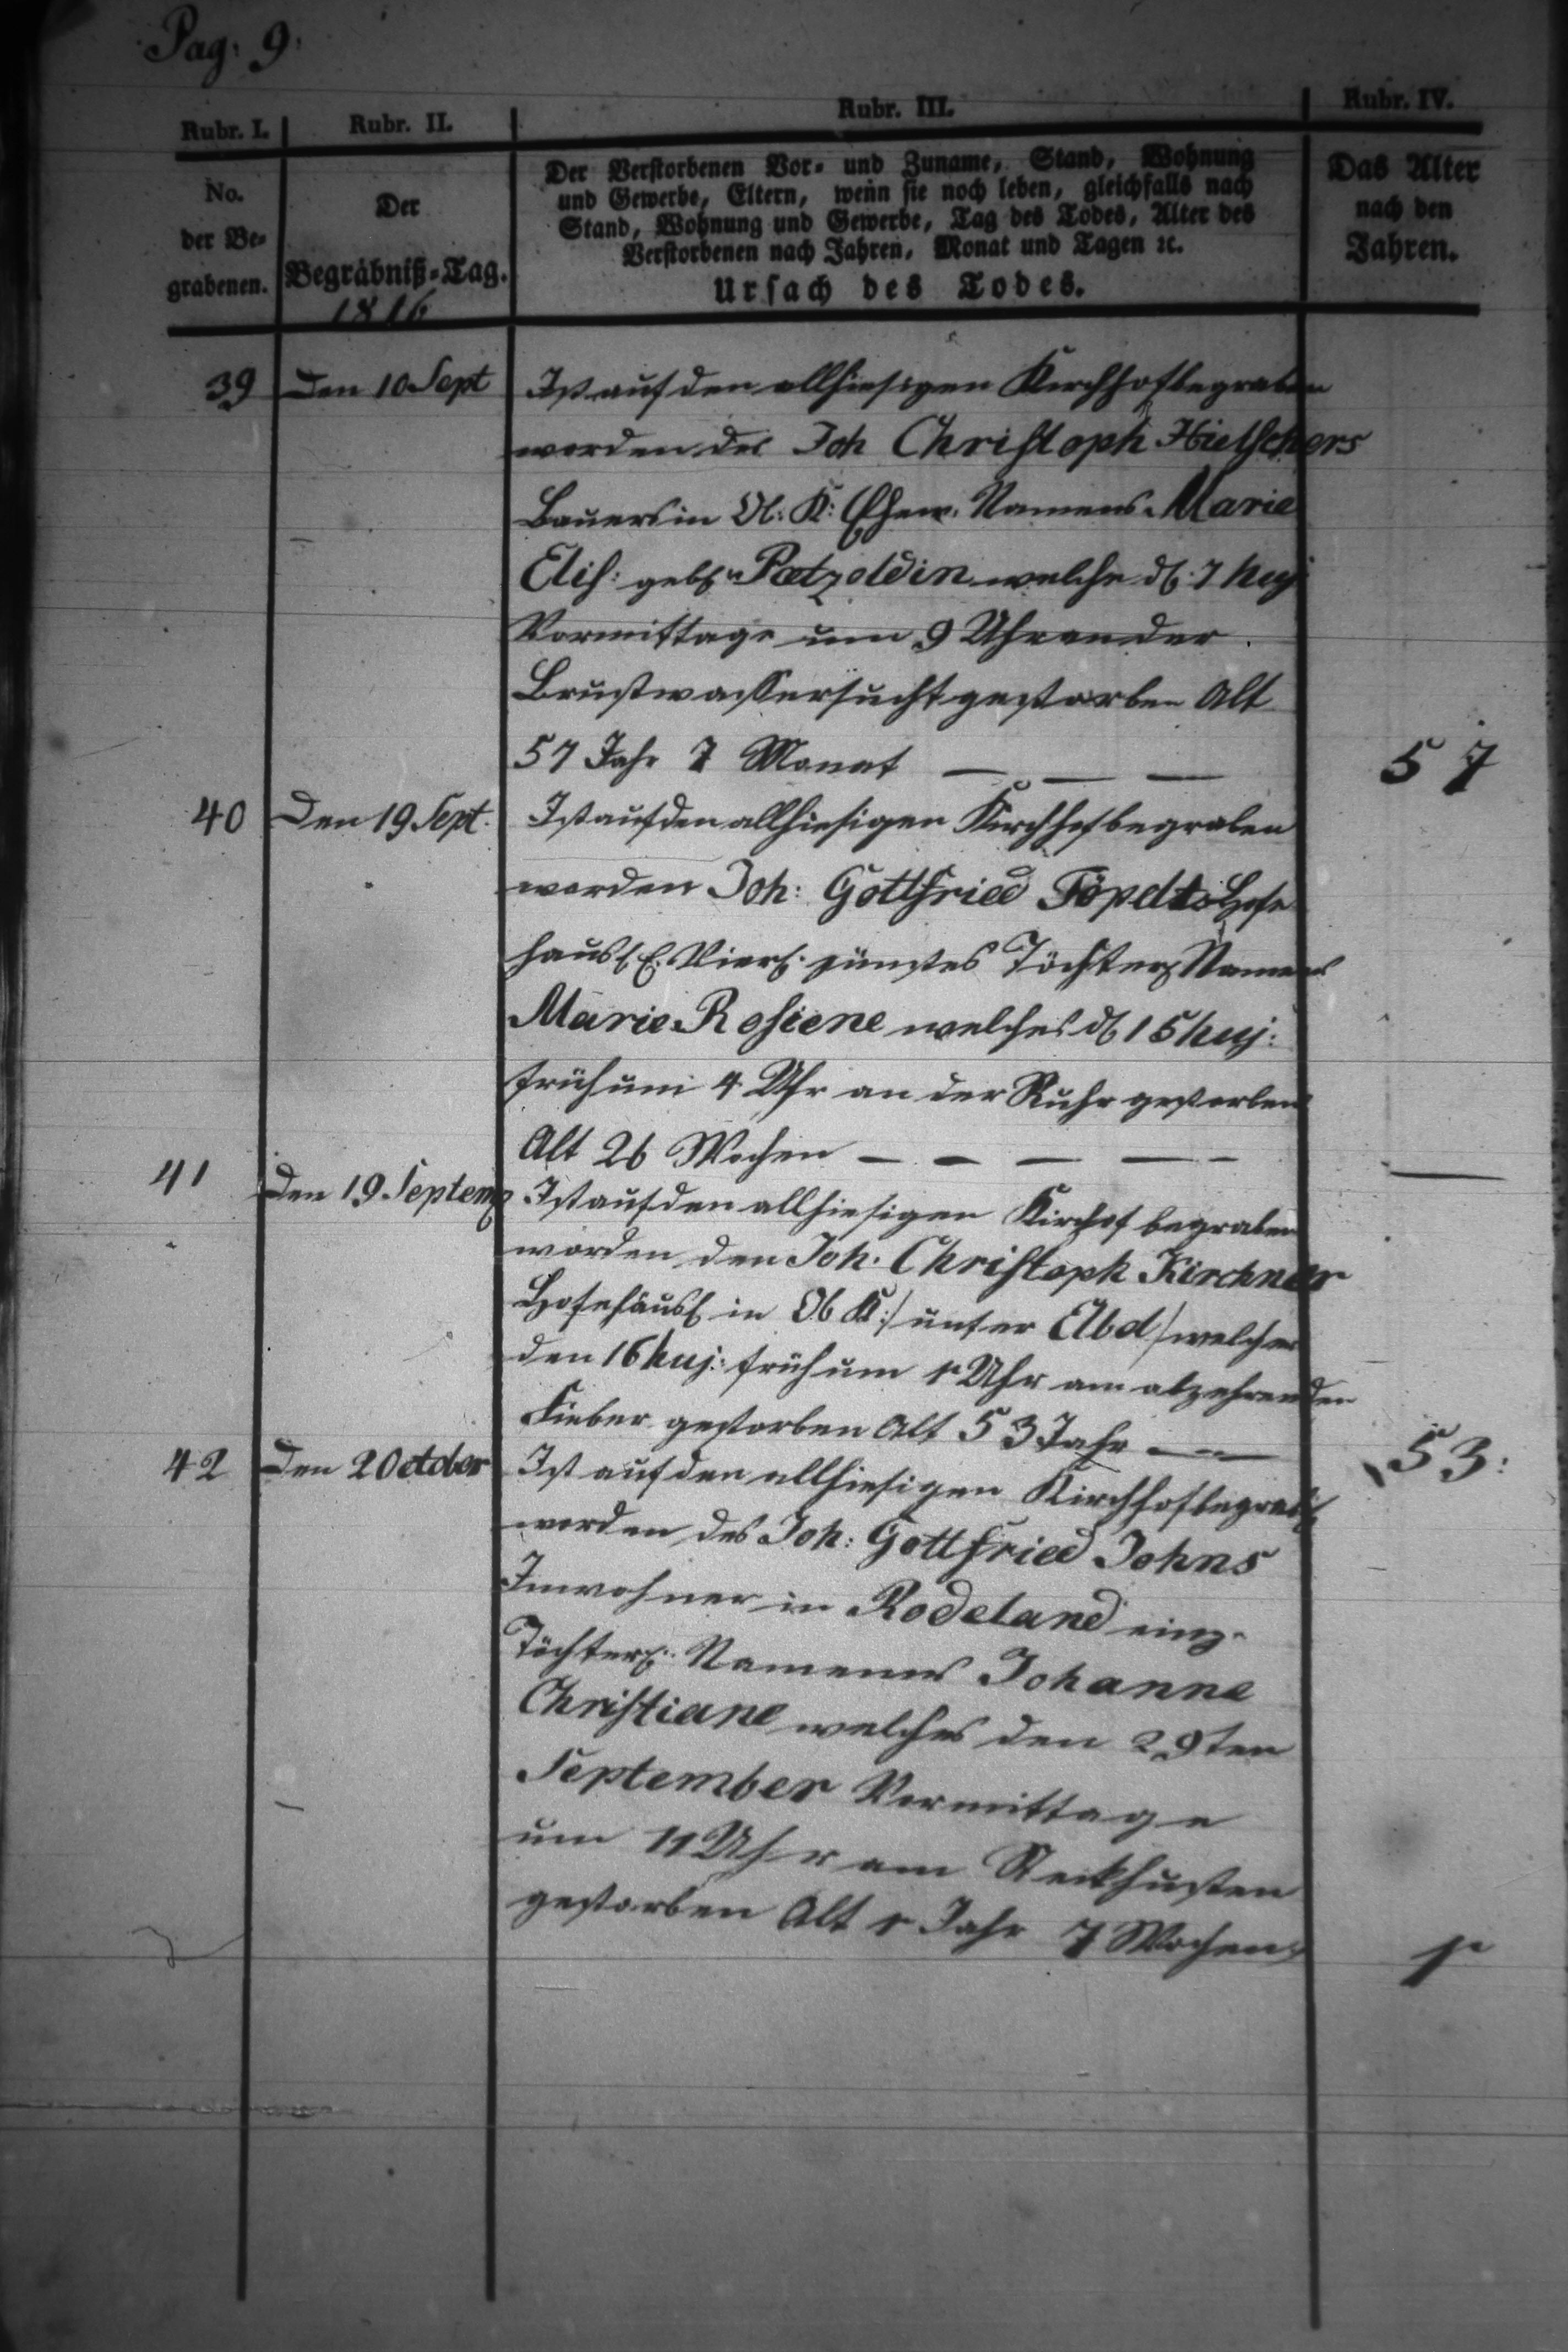 Pag: 9.
Rubr. I. Rubr. II. Rubr. III. Rubr. IV.
No. der Be- grabenen.
Der Begräbniß-Tag.
1816
Der Verstorbenen Vor- und Zuname, Stand, Wohnung
und Gewerbe, Eltern, wenn sie noch leben, gleichfalls nach
Stand, Wohnung und Gewerbe, Tag des Todes, Alter des
Verstorbenen nach Jahren, Monat und Tagen ꝛc.
Ursach des Todes.
Das Alter
nach den
Jahren.
39 Den 10 Sept Ist auf den allhiesigen Kirchhof begraben
worden des Joh Christoph Hielschers
Bauers in Ob: K: Ehew. Namens Marie
Elis: geb. Pætzoldin welche d. 7 huj
Vormittage um 9 Uhr an der
Brustwassersucht gestorben Alt
57 Jahr 7 Monat — — — 57
40 Den 19 Sept. Ist auf den allhiesigen Kirchhof begraben
worden Joh: Gottfried Töpelts Hofe
häusl. jüngstes Töchterl. Namens
Marie Rosiene welches d. 15 huj:
früh um 4 Uhr an der Ruhr gestorben
Alt 26 Wochen — — — — — —
41 Den 19 Septemb Ist auf den allhiesigen Kirchof begraben
worden den Joh. Christoph Kirchner
Hofehäusl in Ob K:/ unter Elbel/ welcher
den 16 huj: früh um 1 Uhr am abzehrenden
Fieber gestorben Alt 53 Jahr — — 53:
42 Den 2 October Ist auf den allhiesigen Kirchhof begrab.
worden des Joh: Gottfried Johns
Inwohner in Rodeland einz.
Töchterl: Namenns Johanne
Christiane welches den 29ten
September Vormittage
um 11 Uhr am Steckhusten
gestorben Alt 1 Jahr 7 Wochen 1